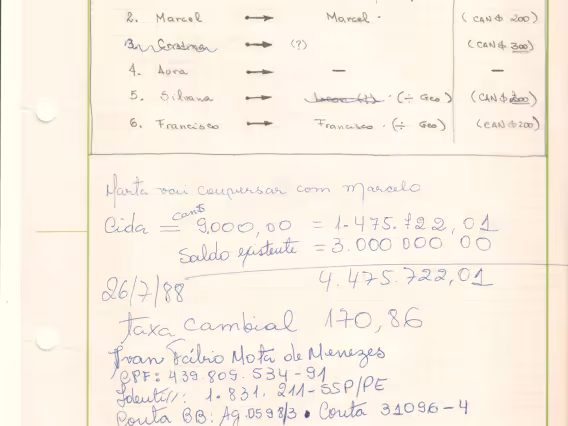 2. Marcel → Marcel. (CAN$ 200)
3. → (?) (CAN$ 300)
4. Aura → — —
5. Silvana → (÷ Geo) (CAN$ 200)
6. Francisco → Francisco. (÷ Geo) (CAN$ 200)
Marta vai conversar com Marcelo
Cida = Can$ 9.000,00 = 1.475.722,01
Saldo existente = 3.000 000 00
4.475.722,01
26/7/88
taxa cambial 170,86
Ivan Fábio Mota de Menezes
CPF: 439.809.534-91
Identi//: 1.831.211-SSP/PE
Conta BB: Ag. 0598/3 • Conta 31096-4